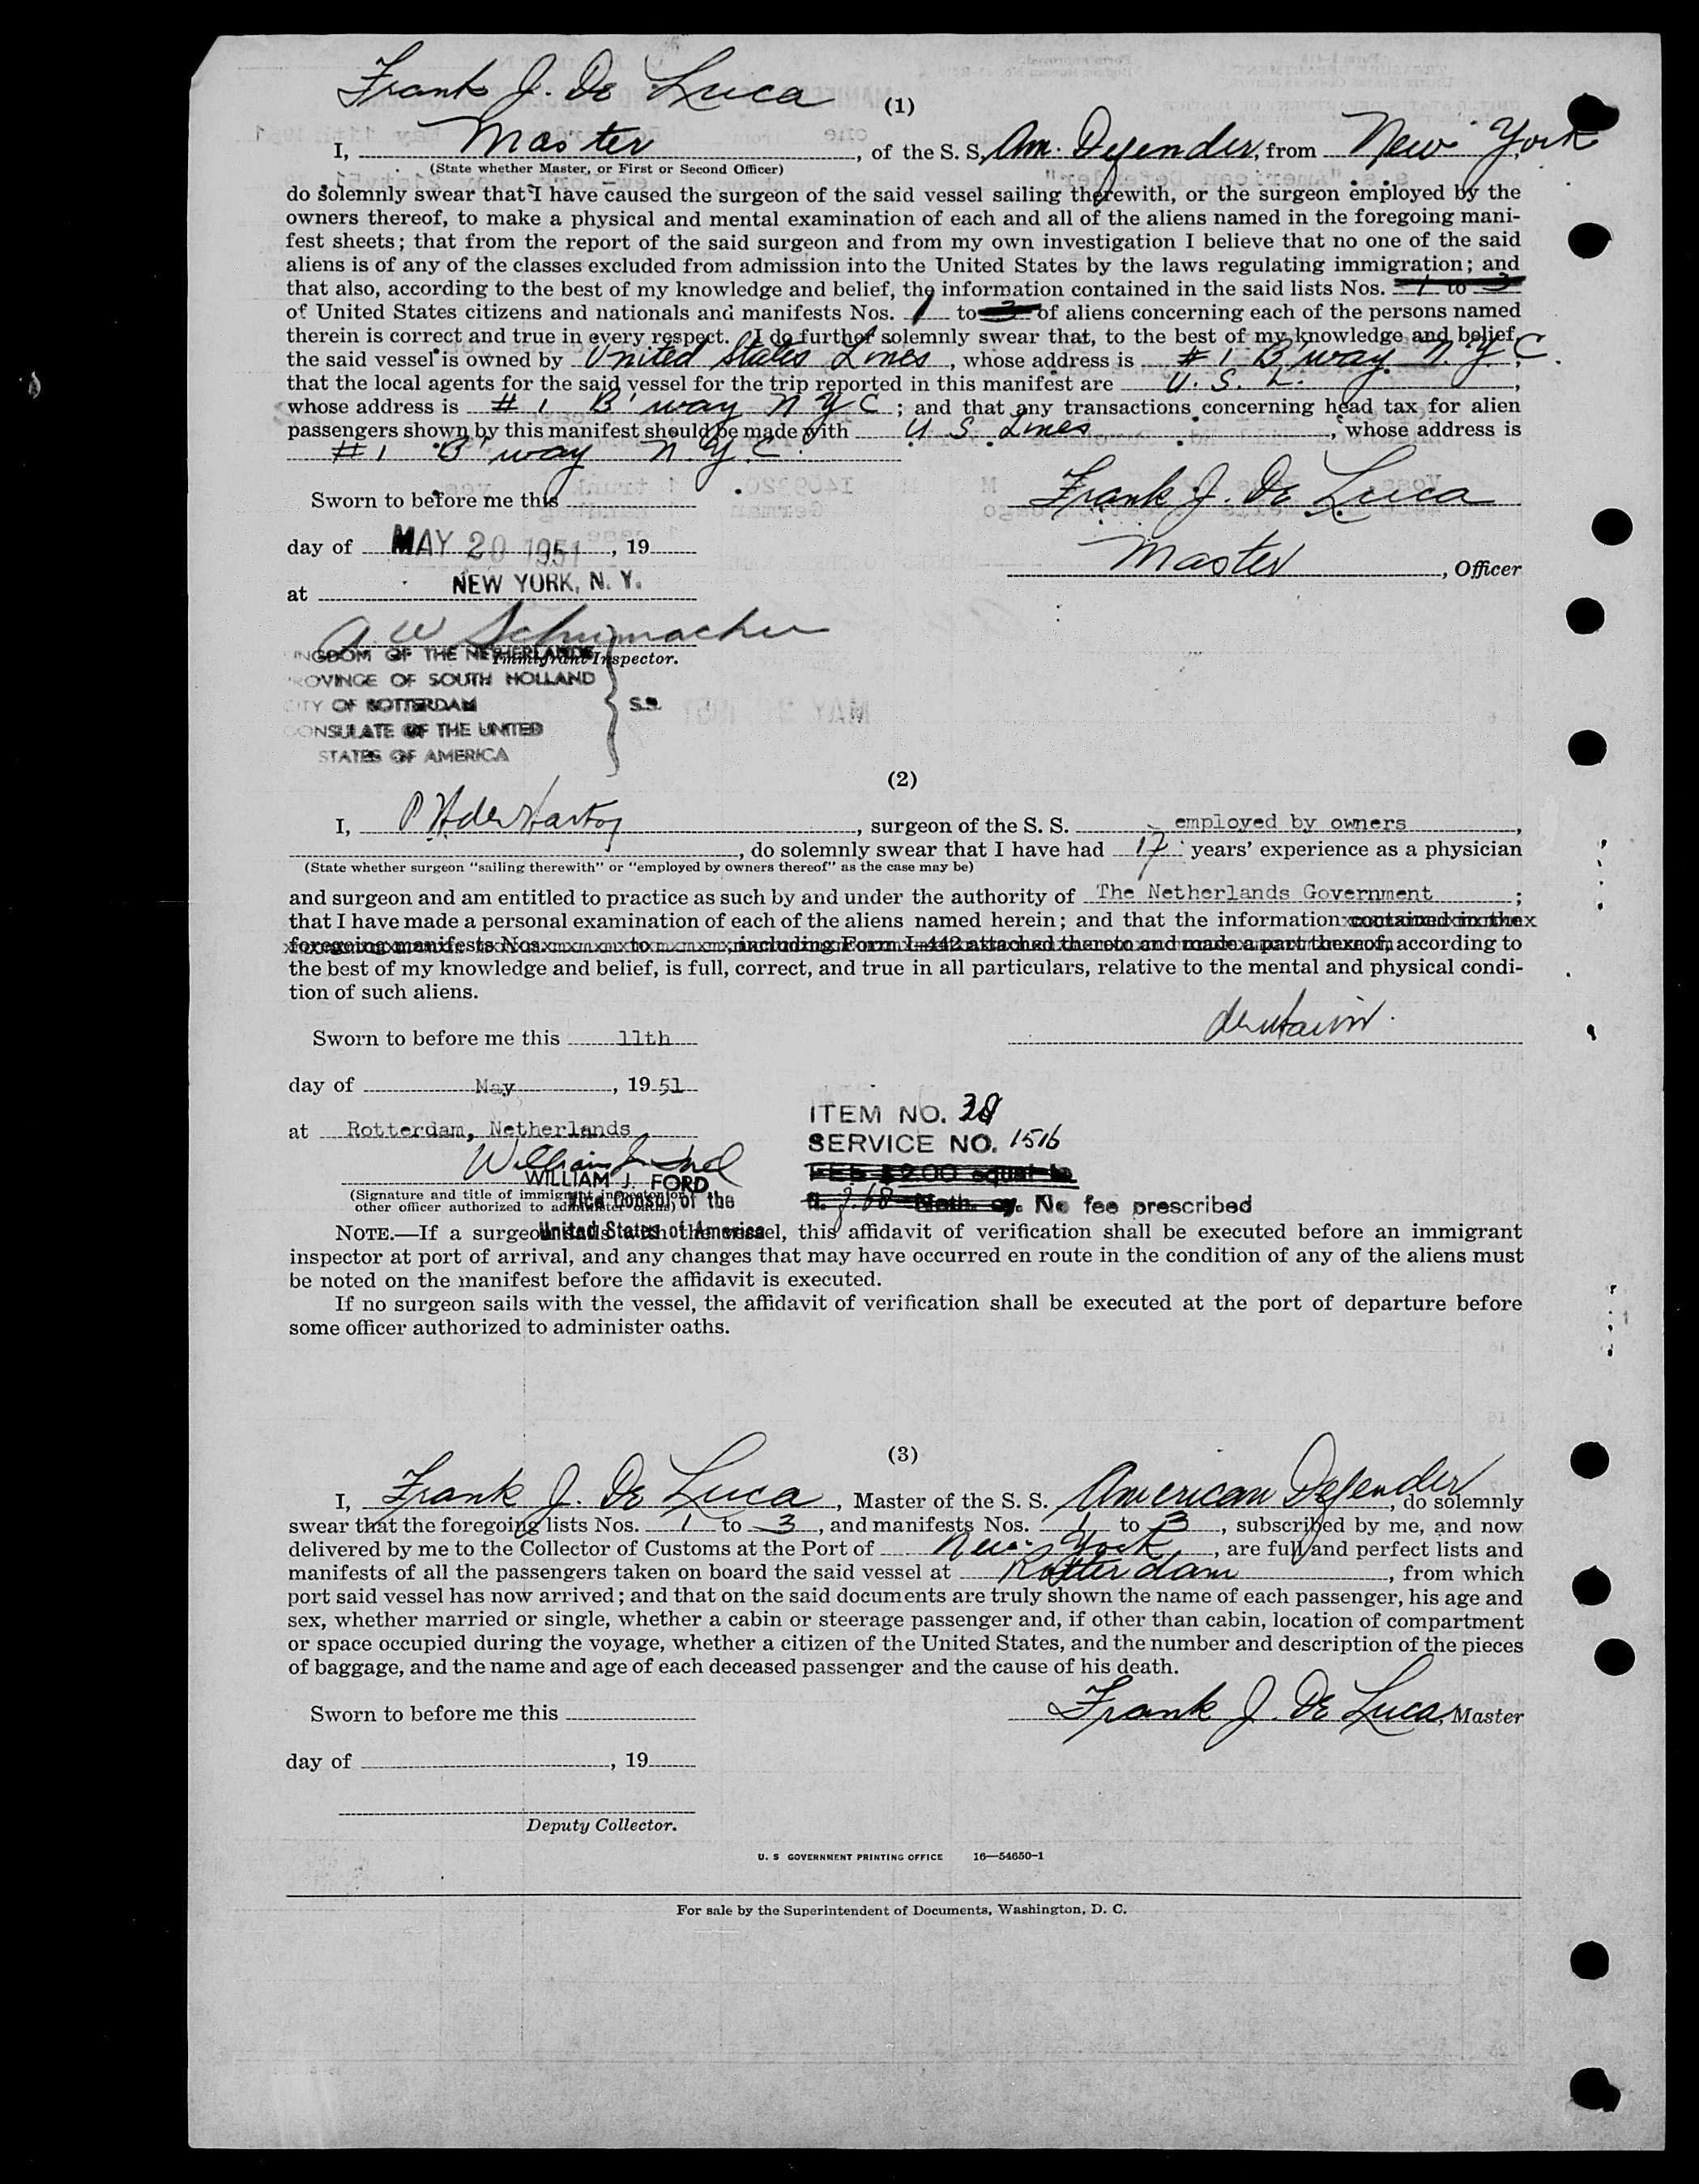 Frank J. De Luca
(1)
I, Master, of the S. S. Am. Defender, from New York
(State whether Master, or First or Second Officer)
do solemnly swear that I have caused the surgeon of the said vessel sailing therewith, or the surgeon employed by the
owners thereof, to make a physical and mental examination of each and all of the aliens named in the foregoing mani-
fest sheets; that from the report of the said surgeon and from my own investigation I believe that no one of the said
aliens is of any of the classes excluded from admission into the United States by the laws regulating immigration; and
that also, according to the best of my knowledge and belief, the information contained in the said lists Nos. 1 to 3
of United States citizens and nationals and manifests Nos. 1 to 3 of aliens concerning each of the persons named
therein is correct and true in every respect. I do further solemnly swear that, to the best of my knowledge and belief,
the said vessel is owned by United States Lines, whose address is # 1 B'way. N. Y. C.;
that the local agents for the said vessel for the trip reported in this manifest are U. S. L.,
whose address is # 1 B'way N Y C; and that any transactions concerning head tax for alien
passengers shown by this manifest should be made with U S Lines, whose address is
# 1 B'way N. Y. C.
Sworn to before me this
Frank J. De Luca
day of MAY 20 1951, 19
Master, Officer
at NEW YORK, N. Y.
A. W. Schumacher
Immigrant Inspector.
INGDOM OF THE NETHERLANDS
ROVINCE OF SOUTH HOLLAND
ITY OF ROTTERDAM S.S.
ONSULATE OF THE UNITED
STATES OF AMERICA
(2)
I, , surgeon of the S. S. employed by owners,
, do solemnly swear that I have had 17 years' experience as a physician
(State whether surgeon "sailing therewith" or "employed by owners thereof" as the case may be)
and surgeon and am entitled to practice as such by and under the authority of The Netherlands Government;
that I have made a personal examination of each of the aliens named herein; and that the information contained in the
foregoing manifests Nos. to , including Form I-442 attached thereto and made a part thereof, according to
the best of my knowledge and belief, is full, correct, and true in all particulars, relative to the mental and physical condi-
tion of such aliens.
Sworn to before me this 11th
day of May, 19 51
at Rotterdam, Netherlands
ITEM NO. 38
SERVICE NO. 1516
FEE $2.00 equal to
fl. Neth. cy. No fee prescribed
WILLIAM J. FORD
Vice Consul of the
United States of America
(Signature and title of immigrant inspector or
other officer authorized to administer oaths)
NOTE.—If a surgeon sails with the vessel, this affidavit of verification shall be executed before an immigrant
inspector at port of arrival, and any changes that may have occurred en route in the condition of any of the aliens must
be noted on the manifest before the affidavit is executed.
If no surgeon sails with the vessel, the affidavit of verification shall be executed at the port of departure before
some officer authorized to administer oaths.
(3)
I, Frank J. De Luca, Master of the S. S. American Defender, do solemnly
swear that the foregoing lists Nos. 1 to 3, and manifests Nos. 1 to 3, subscribed by me, and now
delivered by me to the Collector of Customs at the Port of New York, are full and perfect lists and
manifests of all the passengers taken on board the said vessel at Rotterdam, from which
port said vessel has now arrived; and that on the said documents are truly shown the name of each passenger, his age and
sex, whether married or single, whether a cabin or steerage passenger and, if other than cabin, location of compartment
or space occupied during the voyage, whether a citizen of the United States, and the number and description of the pieces
of baggage, and the name and age of each deceased passenger and the cause of his death.
Sworn to before me this
Frank J. De Luca, Master
day of , 19
Deputy Collector.
U. S GOVERNMENT PRINTING OFFICE 16—54650-1
For sale by the Superintendent of Documents, Washington, D. C.